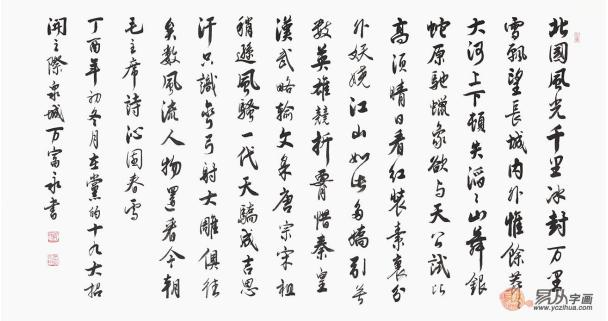 北國風光千里冰封万里
雪飄望長城内外惟餘莽
大河上下頓失滔〻山舞銀
蛇原馳蠟象欲与天公試比
高須晴日看紅裝素裹分
外妖嬈江山如此多嬌引無
數英雄競折腰惜秦皇
漢武略輸文采唐宗宋祖
稍遜風騷一代天驕成吉思
汗只識彎弓射大雕俱往
矣數風流人物還看今朝
毛主席詩沁園春雪
丁酉年初冬月在黨的十九大招
開之際泉城万富永書
易从字画
www.yczihua.com